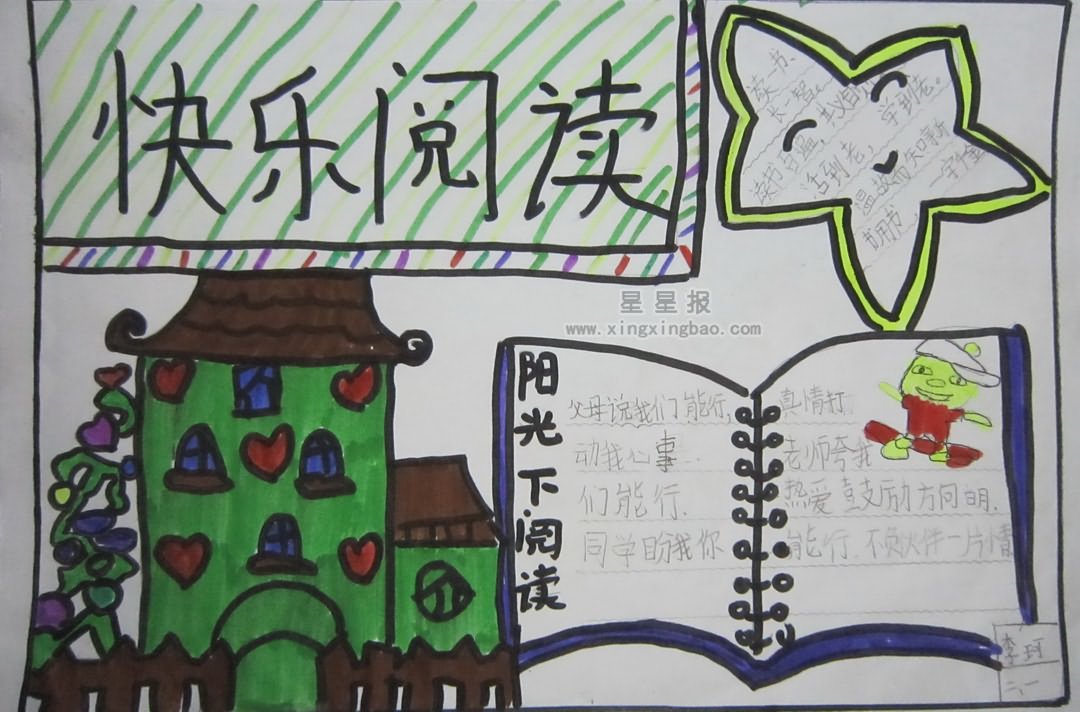 快乐阅读
读一书、
长一智。
读书百遍，其义自
活到老，学到老。
温故而知新
书用书，一字千金
星星报
www.xingxingbao.com
阳光下阅读
父母说我们能行，真情打
动我心事．老师夸我
们能行．热爱鼓励方向明．
同学盼我你能行．不负伙伴一片情
李珂
二、一